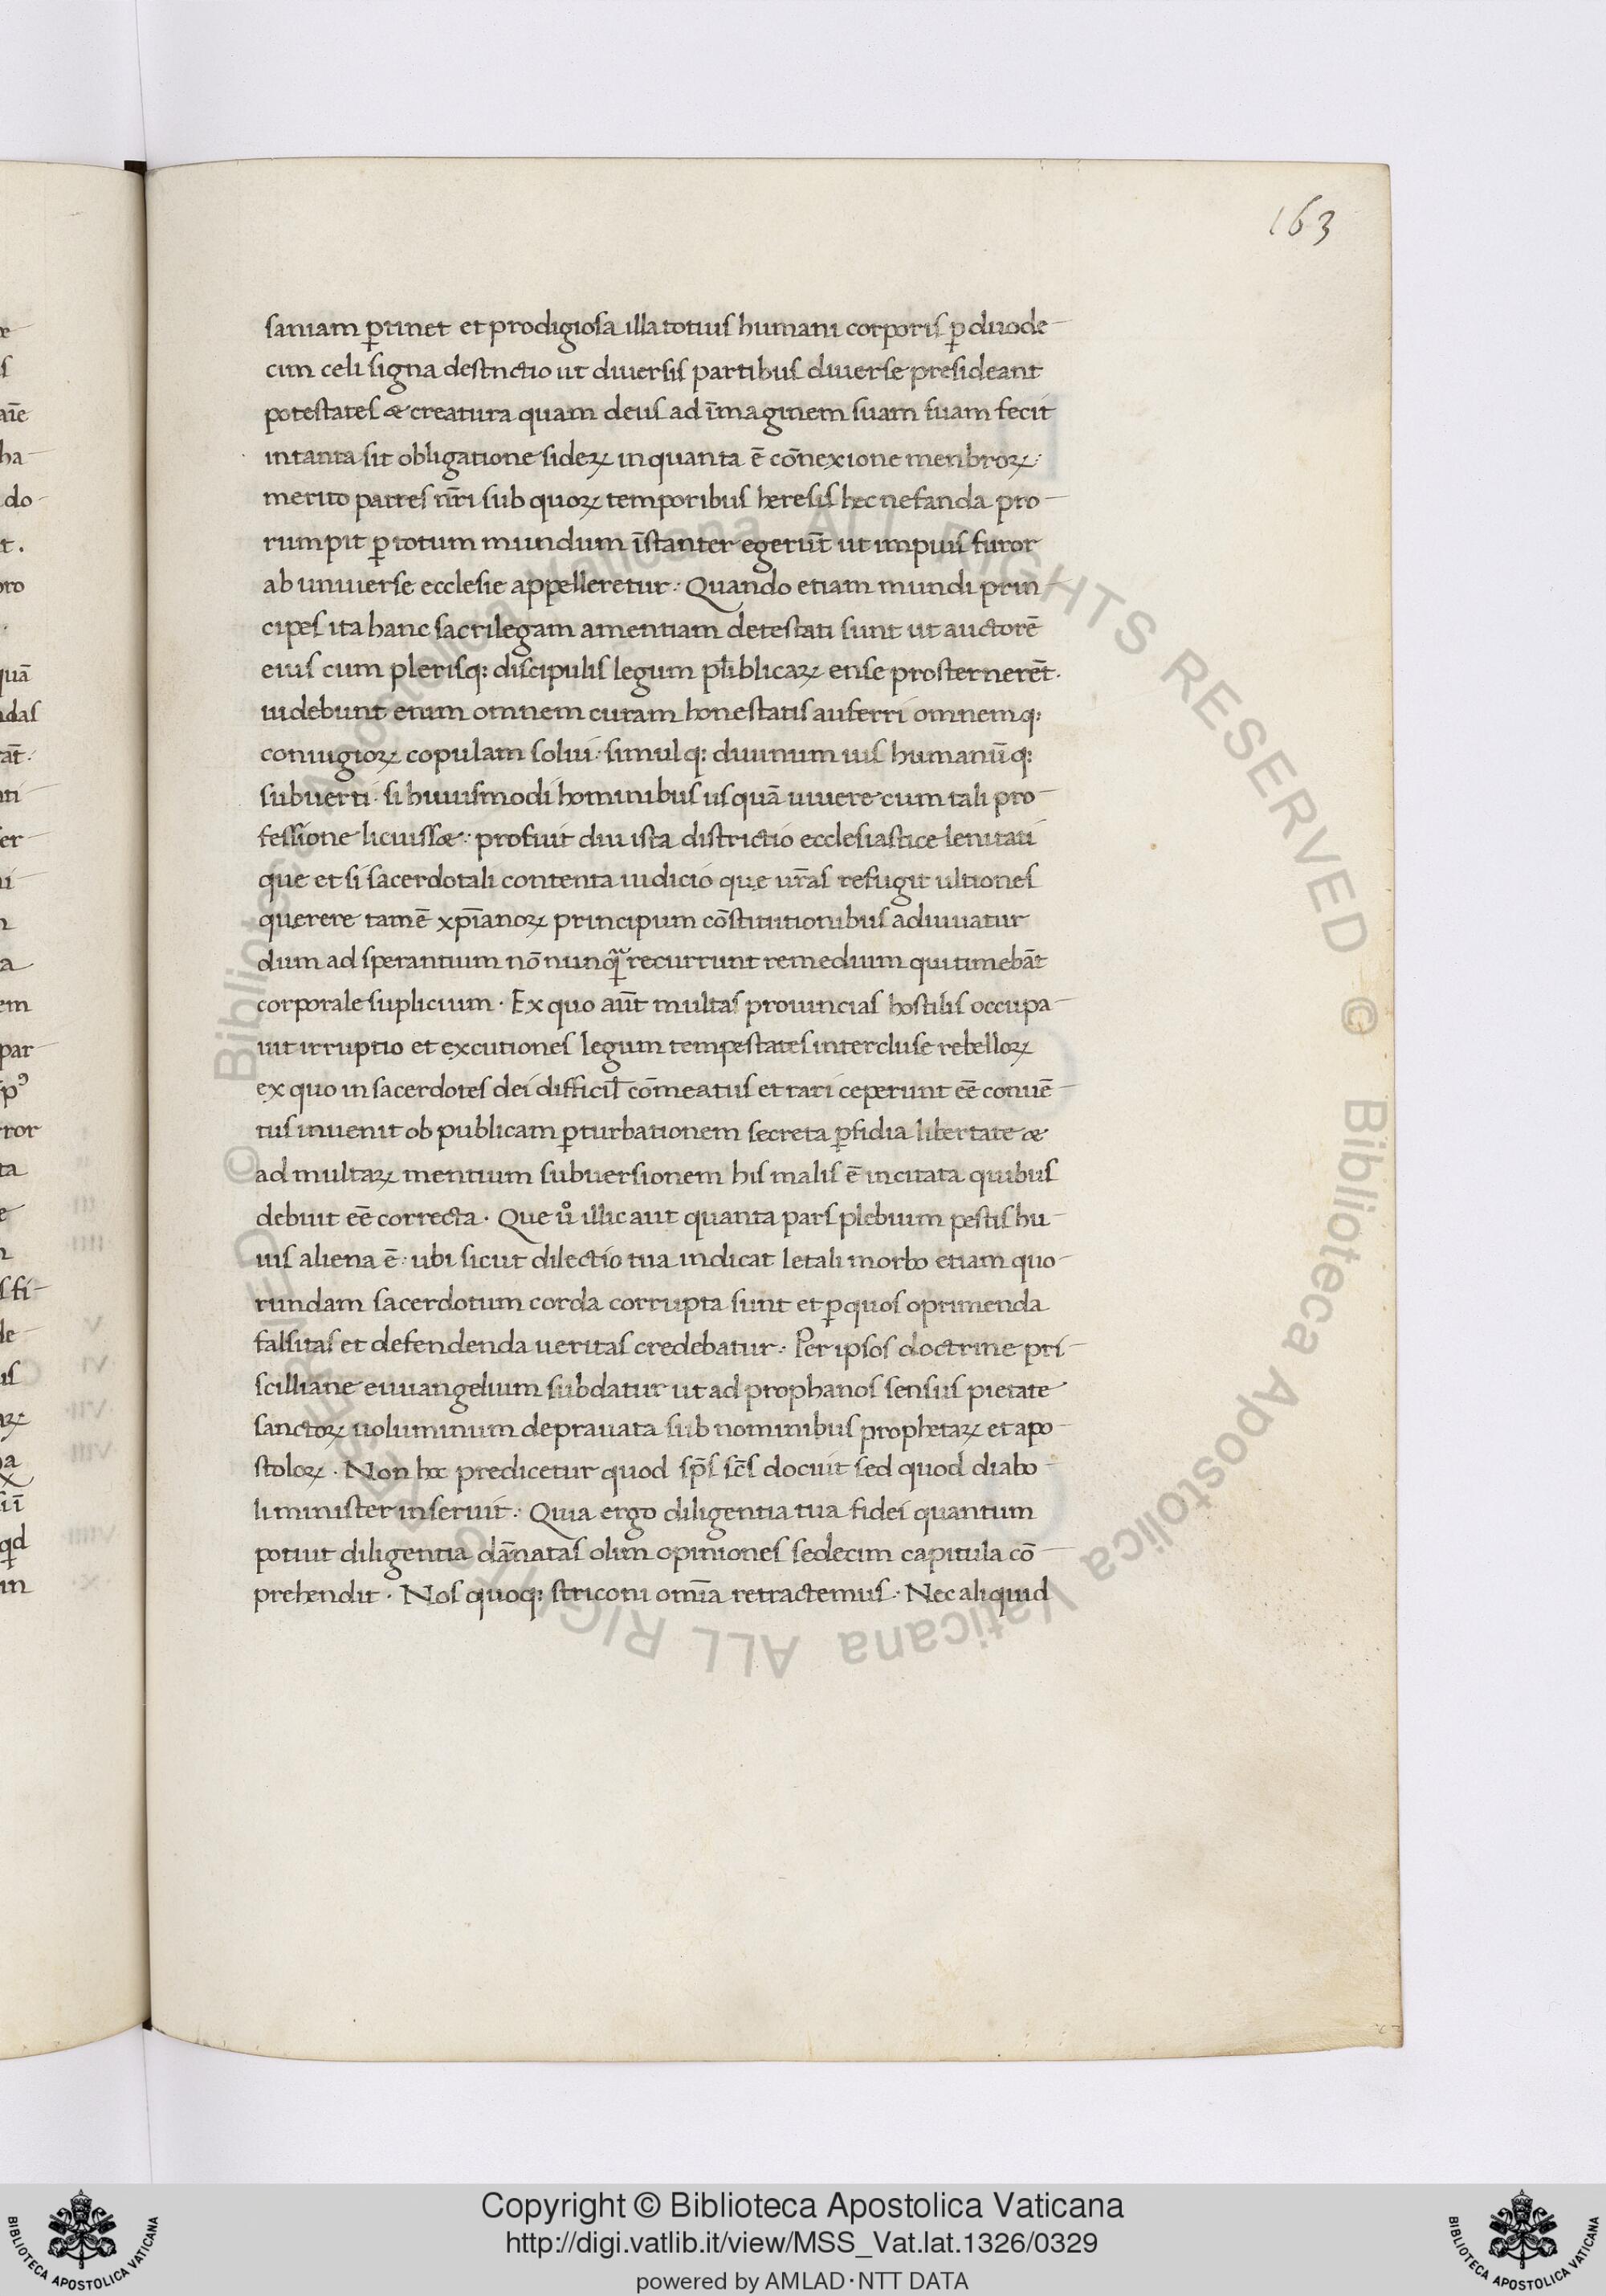 163
saniam ꝑtinet et prodigiosa illa totius humani corporis ꝑ duode
cim celi signa destnctio ut diuersis partibus diuerse presideant
potestates & creatura quam deus ad īmaginem suam suam fecit
intanta sit obligatione sideꝝ inquanta ē cōnexione menbroꝝ·
merito patres nr̄i sub quoꝝ temporibus heresis hec nefanda pro
rumpit ꝑ totum mundum īstanter egerūt ut impius furor
ab uniuerse ecclesie appelleretur· Quando etiam mundi prin
cipes ita hanc sacrilegam amentiam detestati sunt ut auctorē
eius cum plerisq: discipulis legum publicaꝝ ense prosternerēt·
uidebunt enim omnem curam honestatis auferri omnemq:
coniugioꝝ copulam solui· simulq: diuinum ius humanūq:
subuerti· si huiusmodi hominibus usquā uiuere cum tali pro
fessione licuiss&· profuit diu ista districtio ecclesiastice lenitati
que et si sacerdotali contenta iudicio que ur̄as refugit ultiones
querere tamē xp̄ianoꝝ principum cōstitutionibus adiuuatur
dum ad sperantium nō nunqᷓ recurrunt remedium qui timebāt
corporale suplicium· Ex quo aūt multas prouincias hostilis occupa
uit irruptio et excutiones legum tempestates intercluse rebelloꝝ
ex quo in sacerdotes dei difficil̄ cōmeatus et rari ceperunt eē conuē
tus inuenit ob publicam ꝑturbationem secreta ꝑfidia libertate &
ad multaꝝ mentium subuersionem his malis ē incitata quibus
debuit eē correcta· Que uͦ illic aut quanta pars plebium pestis hu
ius aliena ē· ubi sicut dilectio tua indicat letali morbo etiam quo
rundam sacerdotum corda corrupta sunt et ꝑ quos oprimenda
falsitas et defendenda ueritas credebatur· Per ipsos doctrine pri
scilliane euuangelium subdatur ut ad prophanos sensus pietate
sanctoꝝ uoluminum deprauata sub nominibus prophetaꝝ et apo
stoloꝝ· Non hoc predicetur quod sp̄s sc̄s docuit sed quod diabo
li minister inseruit· Quia ergo diligentia tua fidei quantum
potuit diligentia dānatas olim opiniones sedecim capitula cō
prehendit· Nos quoq: striconi omīa retractemus· Nec aliquid
© Biblioteca Apostolica Vaticana ALL RIGHTS RESERVED © Biblioteca Apostolica Vaticana ALL RIGHTS RESERVED
Copyright © Biblioteca Apostolica Vaticana
http://digi.vatlib.it/view/MSS_Vat.lat.1326/0329
powered by AMLAD·NTT DATA
BIBLIOTECA APOSTOLICA VATICANA
BIBLIOTECA APOSTOLICA VATICANA